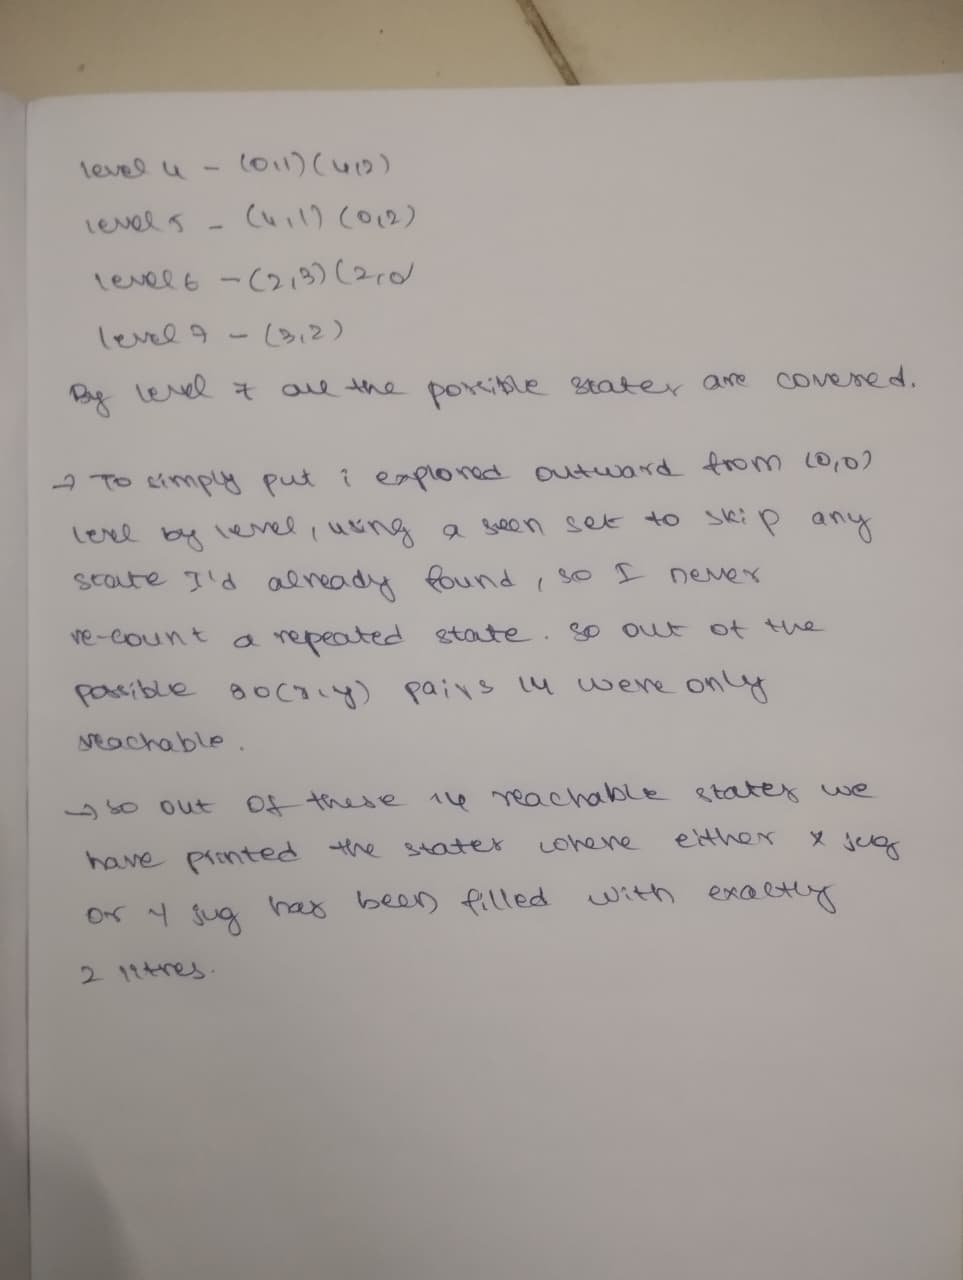 level 4 - (0,1) (4,2)
level 5 - (4,1) (0,2)
level 6 - (2,3) (2,0)
level 7 - (3,2)
By level 7 all the possible states are covered.
→ To simply put i explored outward from (0,0)
level by level, using a seen set to skip any
state I'd already found, so I never
re-count a repeated state. so out of the
possible (x,y) pairs 14 were only
reachable.
→ so out of these 14 reachable states we
have printed the states where either x jug
or y jug has been filled with exactly
2 litres.